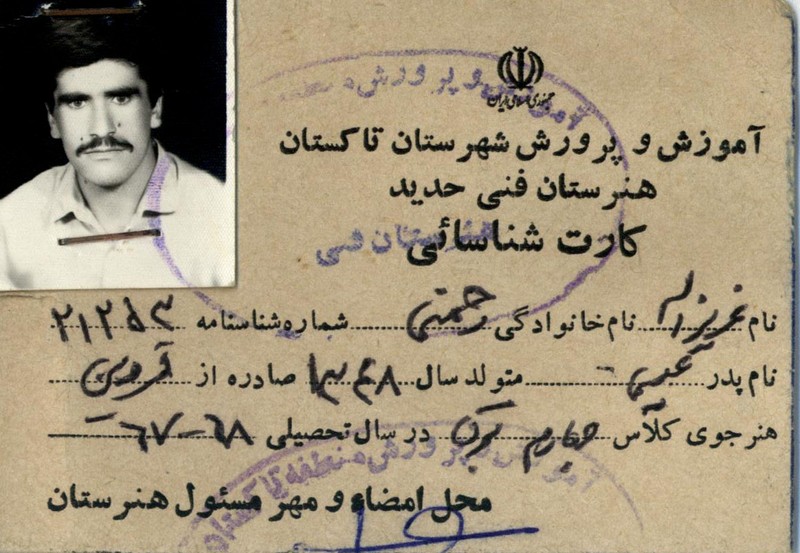 جمهوری اسلامی ایران
آموزش و پرورش شهرستان تاکستان
هنرستان فنی حدید
کارت شناسائی
نام عزیزاله نام خانوادگی رحمتی شماره شناسنامه ۲۱۲۵۳
نام پدر متولد سال ۱۳۴۸ صادره از قزوین
هنرجوی کلاس چهارم برق در سال تحصیلی ۶۸-۶۷
محل امضاء و مهر مسئول هنرستان
آموزش و پرورش منطقه
هنرستان فنی
آموزش و پرورش منطقه تاکستان